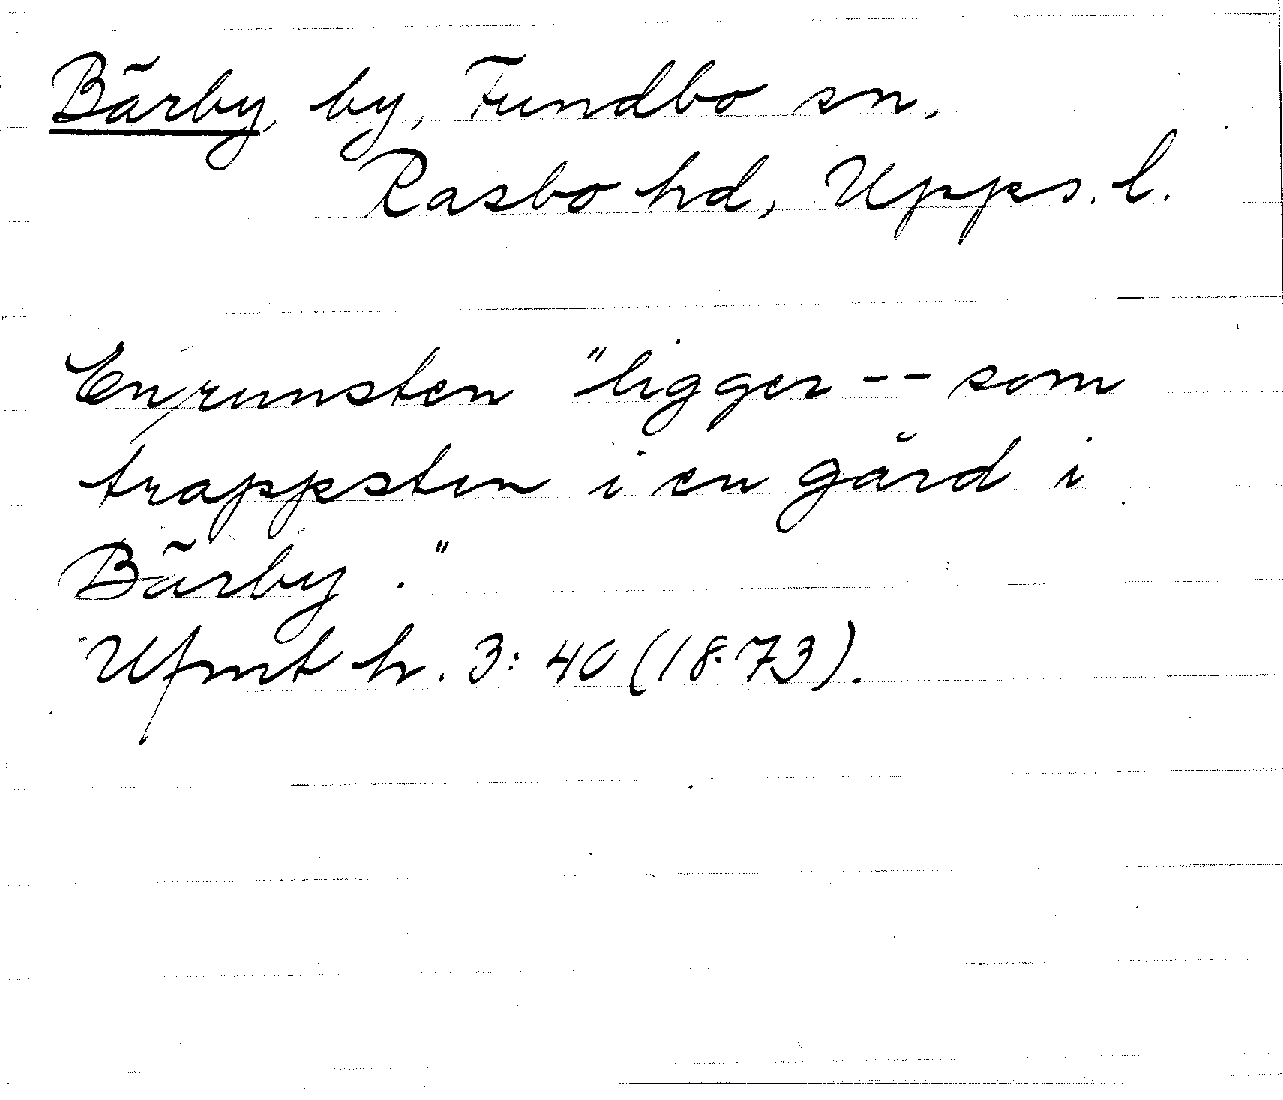 Bärby, by, Fundbo sn,
Rasbo hd, Upps. l.
En runsten "ligger -- som
trappsten i en gård i
Bärby."
Ufmt h. 3: 40 (1873).